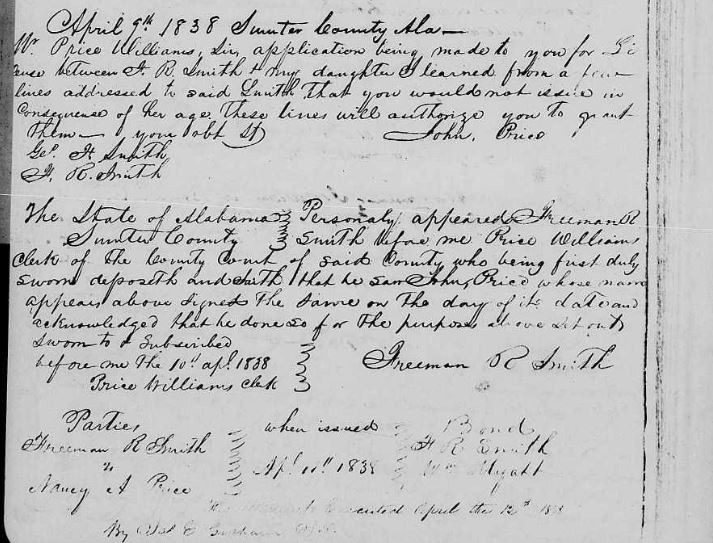 April 9th 1838 Sumter County Ala
Mr. Price Williams, Sir, application being made to you for Li
cense between F. R. Smith & my daughter I learned from a few
lines addressed to said Smith, that you would not issue in
Consequence of her age, These lines will authorize you to grant
them — your obt St John, Price
Geo. F. Smith,
F. R. Smith
The State of Alabama Personaly appeared Freeman R
Sumter County Smith before me Price Williams
Clerk of the County Court of said County who being first duly
sworn deposeth and saith that he saw John Price whose name
appears above signed the same on the day of its date and
acknowledged that he done so for the purposes above set out
Sworn to & Subscribed
before me the 10th apl. 1838 Freeman R Smith
Price Williams Clk
Parties when issued Bond
Freeman R Smith F R Smith
" Apl 10th 1838 Wm
Nancy A Price
executed April the 12th 1838
By